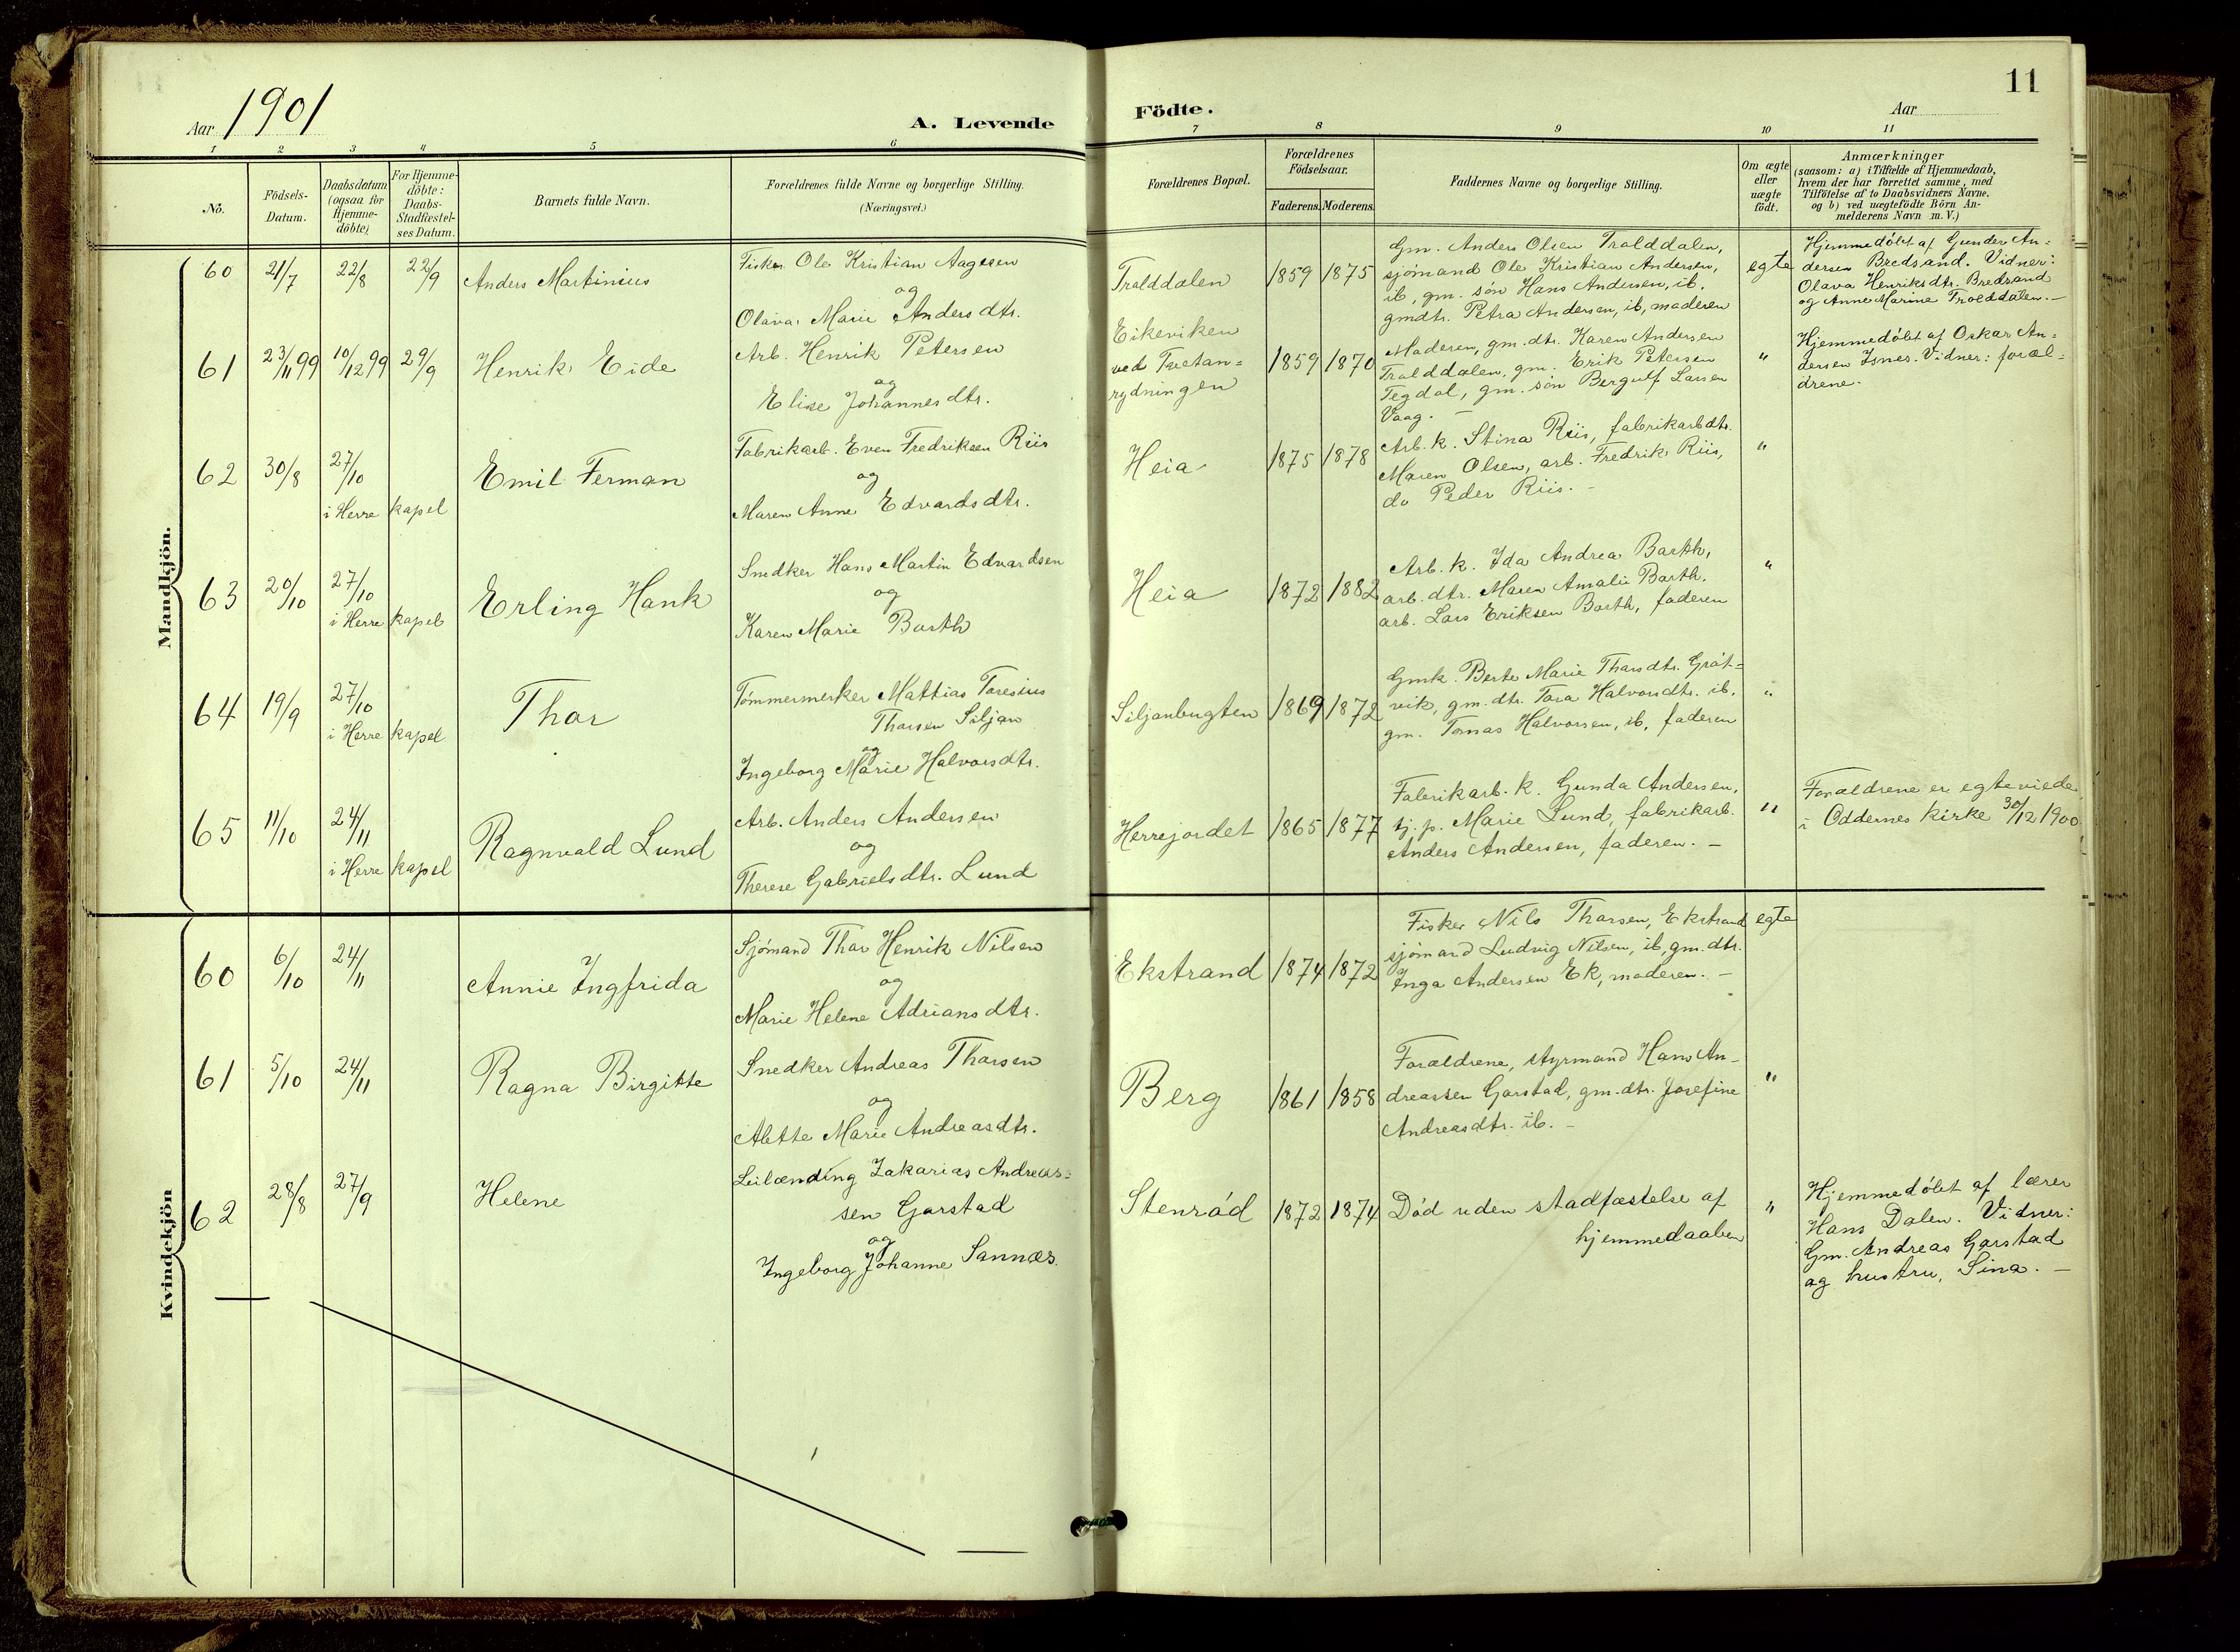 Aar 1901
A. Levende
1 2 3 4 5 6
No.
Födsels-
Datum.
Daabsdatum
(ogsaa for
Hjemme-
döbte)
For Hjemme-
döbte:
Daabs-
Stadfæstel-
ses Datum.
Barnets fulde Navn.
Forældrenes fulde Navne og borgerlige Stilling.
(Næringsvei.)
Mandkjön.
60 21/7 22/8 22/9 Anders Martinius
Fisker Ole Kristian Aagesen
og
Olava Marie Andersdtr.
61 23/11 99 10/12 99 29/9 Henrik Eide
Arb. Henrik Petersen
og
Elise Johannesdtr.
62 30/8 27/10 Emil Ferman
i Herre kapel
Fabrikarb. Even Fredriksen Riis
og
Maren Anne Edvardsdtr.
63 20/10 27/10 Erling Hank
i Herre kapel
Snedker Hans Martin Edvardsen
og
Karen Marie Barth
64 19/9 27/10 Thor
i Herre kapel
Tømmermerker Mattias Toresius
Thorsen Siljan
og
Ingeborg Marie Halvorsdtr.
65 11/10 24/11 Ragnvald Lund
i Herre kapel
Arb. Anders Andersen
og
Therese Gabrielsdtr. Lund
Kvindekjön
60 6/10 24/11 Annie Ingfrida
Sjømand Thor Henrik Nilsen
og
Marie Helene Adriansdtr.
61 5/10 24/11 Ragna Birgitte
Snedker Andreas Thorsen
og
Alette Marie Andreasdtr.
62 28/8 27/9 Helene
Leilænding Zakarias Andreas=
sen Garstad
og
Ingeborg Johanne Sannæs.
11
Födte.
Aar
7 8 9 10 11
Forældrenes Bopæl.
Forældrenes
Födselsaar.
Faderens. Moderens.
Faddernes Navne og borgerlige Stilling.
Om ægte
eller
uægte
födt.
Anmærkninger
(saasom: a) i Tilfælde af Hjemmedaab,
hvem der har forrettet samme, med
Tilföielse af to Daabsvidners Navne.
og b) ved uægtefödte Börn An-
melderens Navn m. V.)
Trolddalen 1859 1875
Gm. Anders Olsen Trolddalen,
sjømand Ole Kristian Andersen,
ib, gm. søn Hans Andersen, ib.
gmdtr. Petra Andersen, ib, moderen
egte
Hjemmedøbt af Gunder An=
dersen Bredsand. Vidner:
Olava Henriksdtr. Bredsand
og Anne Marine Trolddalen. —
Eikeviken
ved Tvetan=
rydningen
1859 1870
Moderen, gm. dtr. Karen Andersen
Trolddalen, gm. Erik Petersen
Tegdal, gm. søn Bergulf Larsen
Vaag. —
"
Hjemmedøbt af Oskar An=
dersen Isnes. Vidner: foræl=
drene.
Heia 1875 1878
Arb. k. Stina Riis, fabrikarbdtr.
Maren Olsen, arb. Fredrik Riis,
do Peder Riis. —
"
Heia 1872 1882
Arb. k. Ida Andrea Barth,
arb. dtr. Maren Amalie Barth.
arb. Lars Eriksen Barth, faderen
"
Siljanbugten 1869 1872
Gmk. Berte Marie Thorsdtr. Grøt=
vik, gm. dtr. Tora Halvorsdtr. ib.
gm. Tomas Halvorsen, ib, faderen
"
Herrejordet 1865 1877
Fabrikarb. k. Gunda Andersen,
tj. p. Marie Lund, fabrikarb.
Anders Andersen, faderen. —
"
Forældrene er egteviede
i Oddernes kirke 30/12 1900
Ekstrand 1874 1872
Fisker Nils Thorsen, Ekstrand
sjømand Ludvig Nilsen, ib, gm. dtr.
Inga Andersen Ek, moderen. —
egte
Berg 1861 1858
Forældrene, styrmand Hans An-
dreassen Garstad, gm. dtr. Josefine
Andreasdtr. ib. —
"
Stenrød 1872 1874
Død uden stadfæstelse af
hjemmedaaben
"
Hjemmedøbt af lærer
Hans Dalen. Vidner:
Gm. Andreas Garstad
og hustru, Sina. —